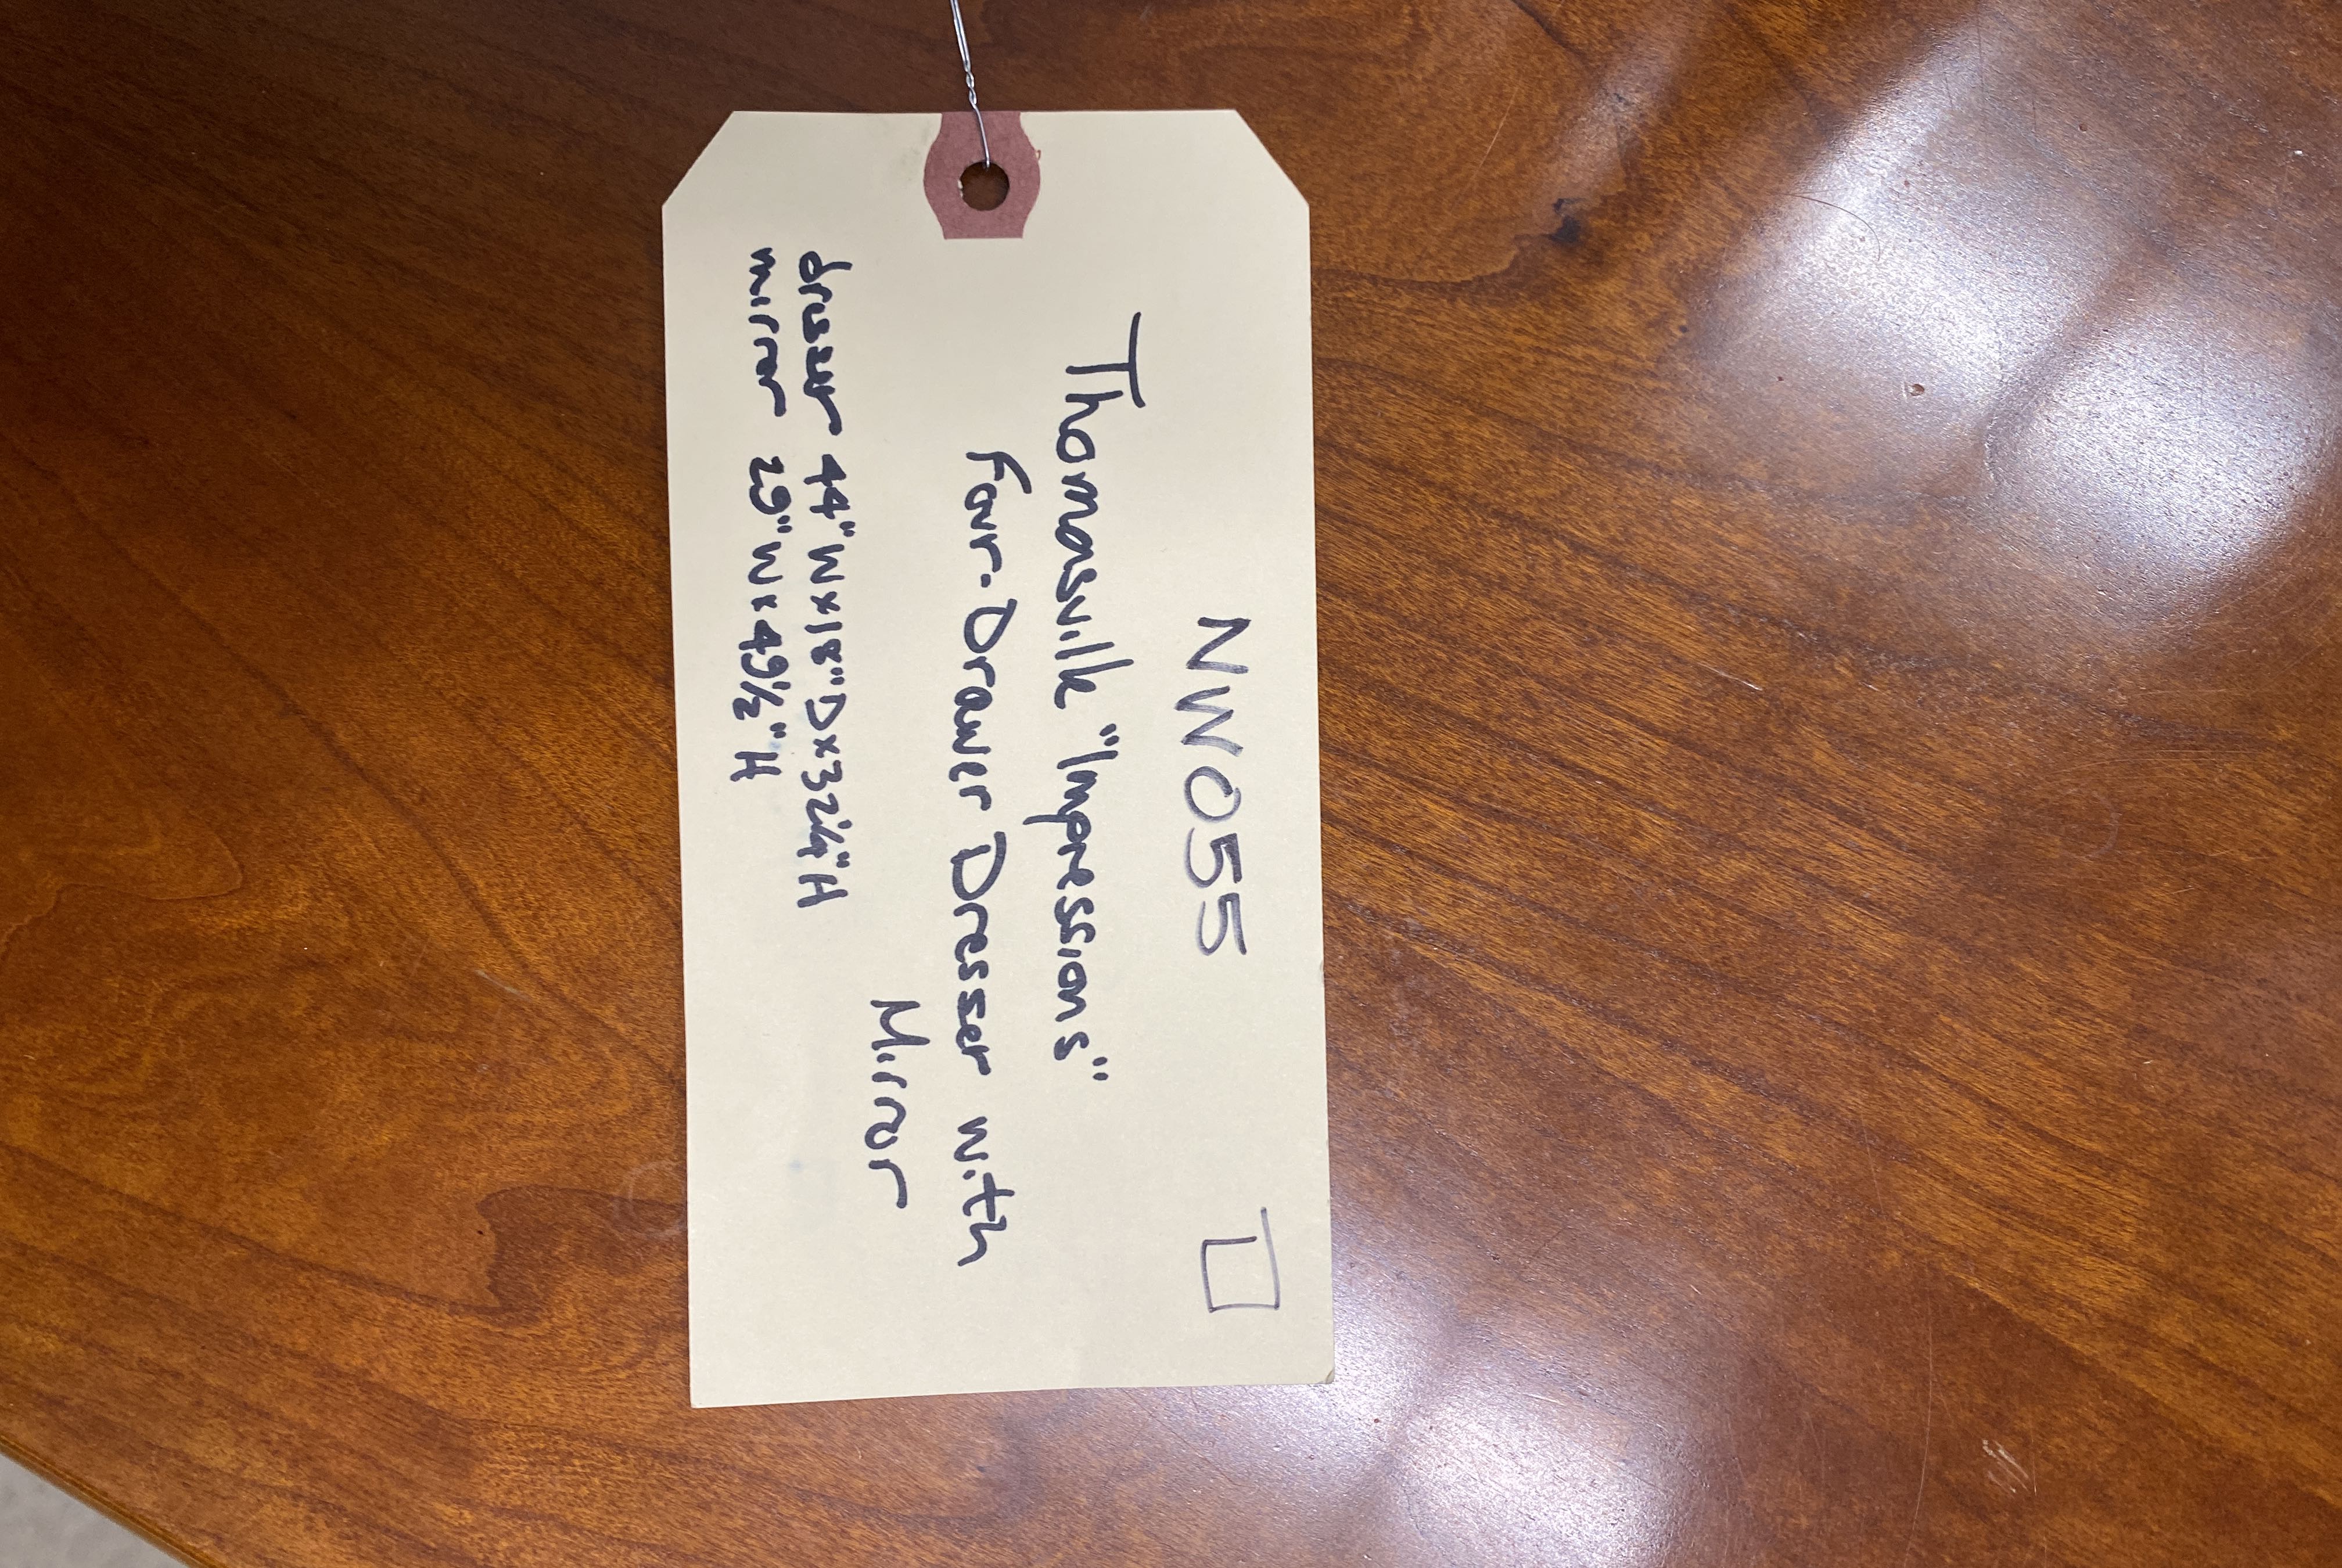 NW055
Thomasville "Impressions"
Four-Drawer Dresser with
Mirror
dresser 44" W x 18" D x 32 1/4" H
mirror 29" W x 49 1/2" H